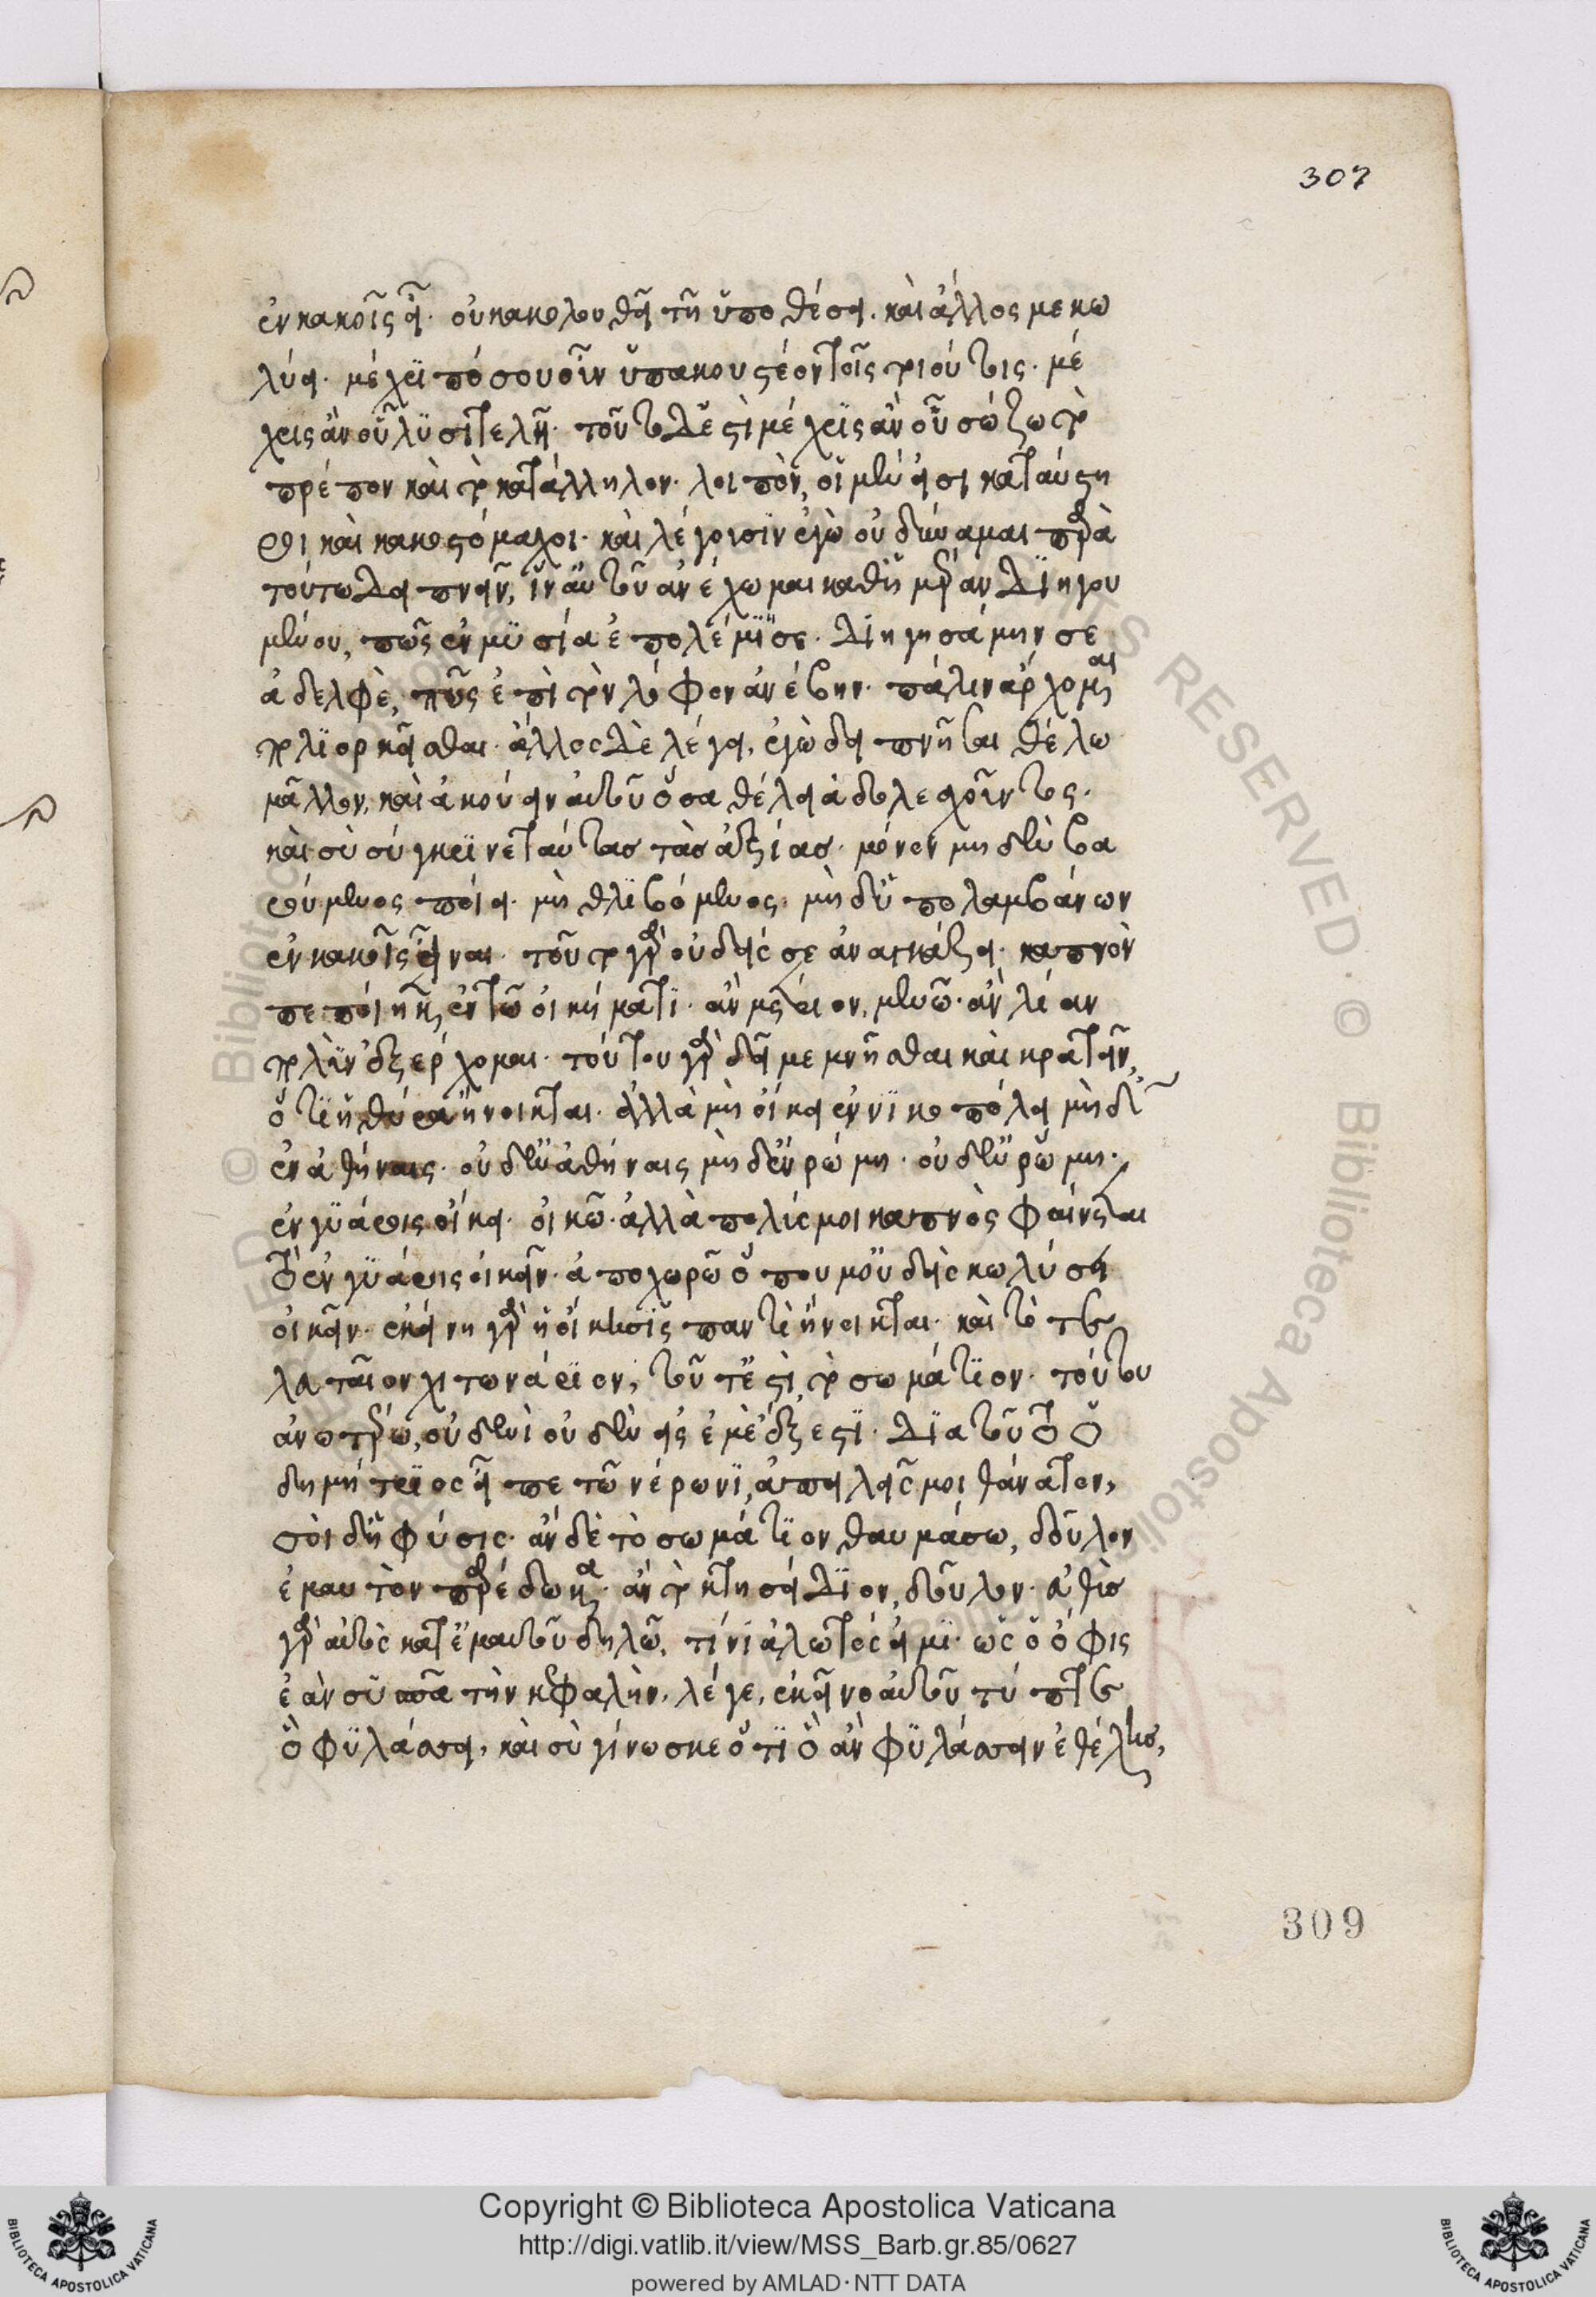 307
ἐν κακοῖς εἶ. οὐκ ἀκολουθεῖ τῇ ὑποθέσει. καὶ ἄλλος με κω
λύει. μέχρι πόσου οὖν ὑπακουστέον τοῖς τοιούτοις. μέ
χρις ἂν οὗ λυσιτελῇ. τοῦτο δέ ἐστι μέχρις ἂν οὗ σώζω τὸ
πρέπον καὶ τὸ κατάλληλον. λοιπὸν, οἱ μέν εἰσι κατάυστη
ροι καὶ κακοστόμαχοι. καὶ λέγουσιν ἐγὼ οὐ δύναμαι παρὰ
τούτω δειπνεῖν, ἵν' αὐτοῦ ἀνέχωμαι καθ' ἡμέραν διηγου
μένου, πῶς ἐν μυσία ἐπολέμησε. διηγησάμην σε
ἀδελφὲ, πῶς ἐπὶ τὸν λόφον ἀνέβην. πάλιν ἄρχομαι
πολιορκεῖσθαι. ἄλλος δὲ λέγει, ἐγὼ δειπνῆσαι θέλω
μᾶλλον, καὶ ἀκούειν αὐτοῦ ὅσα θέλει ἀδολεσχοῦντος.
καὶ σὺ σύγκρινε ταύτας τὰς ἀξίας. μόνον μηδὲν βα
ρύμενος ποίει. μὴ θλιβόμενος, μὴδ' ὑπολαμβάνων
ἐν κακοῖς εἶναι. τοῦτο γὰρ οὐδείς σε ἀναγκάζει. καπνὸν
πεποίηκεν ἐν τῶ οἰκήματι. ἂν μέτριον, μενῶ. ἂν λίαν
πολὺν ἐξέρχομαι. τούτου γὰρ δεῖ μεμνῆσθαι καὶ κρατεῖν,
ὅτι ἡ θύρα ἤνοικται. ἀλλὰ μὴ οἴκει ἐν νικοπόλει μὴδ'
ἐν ἀθήναις. οὐδ' ἐν ἀθήναις μὴδ' ἐν ρώμη. οὐδ' ἐν ρώμη.
ἐν γυάροις οἴκει. οἰκῶ. ἀλλὰ πολύς μοι καπνὸς φαίνεται
τὸ ἐν γυάροις οἰκεῖν. ἀποχωρῶ ὅπου μ' οὐδεὶς κωλύσει
οἰκεῖν. ἐκείνη γὰρ ἡ οἴκησις παντὶ ἤνοικται. καὶ τὸ τε
λευταῖον χιτωνάριον, τοῦτ' ἔστι τὸ σωμάτιον. τούτου
ἀνωτέρω, οὐδενὶ οὐδὲν εἰς ἐμὲ ἔξεστι. διὰ τοῦτο ὁ
δημήτριος εἶπε τῶ νέρωνι, ἀπειλεῖς μοι θάνατον,
σοὶ δ' ἡ φύσις. ἂν δὲ τὸ σωμάτιον θαυμάσω, δοῦλον
ἐμαυτὸν παρέδωκα. ἂν τὸ κτησείδιον, δοῦλον. εὐθὺς
γὰρ αὐτὸς κατ' ἐμαυτοῦ δηλῶ, τίνι ἁλωτός εἰμι. ὡς ὁ ὄφις
ἐὰν συσπᾶ τὴν κεφαλὴν, λέγε, ἐκεῖνο αὐτοῦ τύπτε
ὃ φυλάσσει, καὶ σὺ γίνωσκε ὅτι ὃ ἂν φυλάσσειν ἐθέλης,
309
Copyright © Biblioteca Apostolica Vaticana
http://digi.vatlib.it/view/MSS_Barb.gr.85/0627
powered by AMLAD·NTT DATA